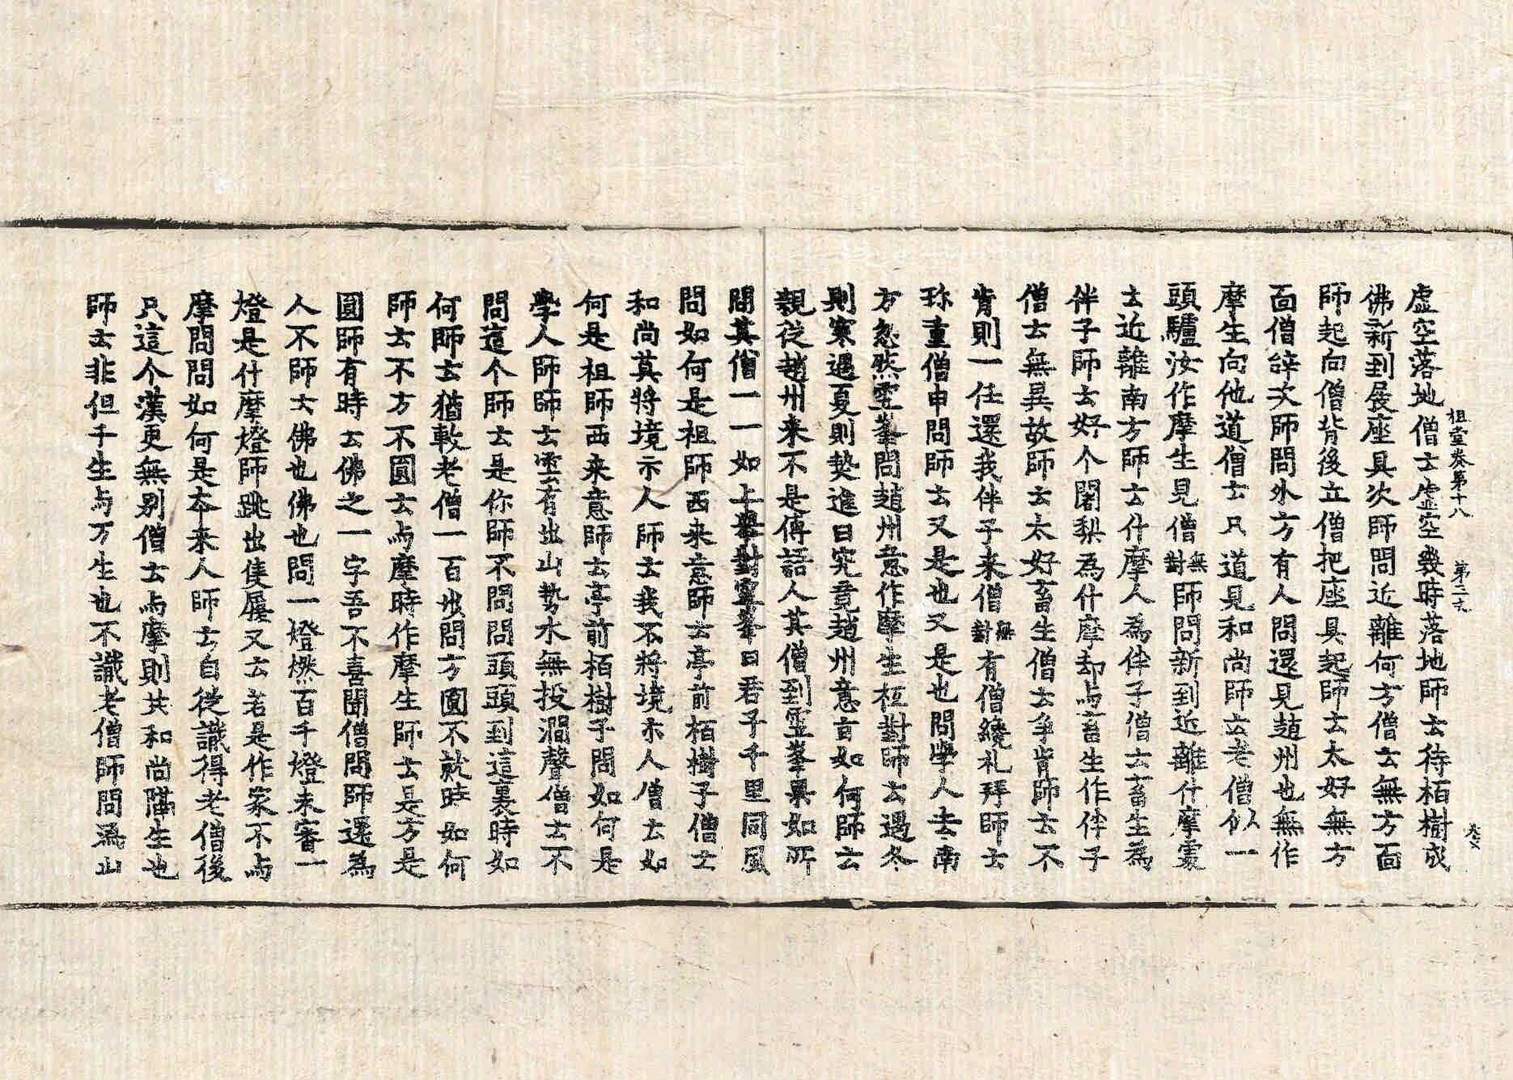 祖堂卷第十八　第三丈
虛空落地僧云虛空幾時落地師云待栢樹成
佛新到展座具次師問近離何方僧云無方面
師起向僧背後立僧把座具起師云太好無方
面僧辞次師問外方有人問還見趙州也無作
摩生向他道僧云只道見和尚師云老僧似一
頭驢汝作摩生見僧無對師問新到近離什摩處
云近離南方師云什摩人為伴子僧云畜生為
伴子師云好个闍梨為什摩却与畜生作伴子
僧云無異故師云太好畜生僧云爭肯師云不
肯則一任還我伴子来僧無對有僧繞礼拜師云
珎重僧申問師云又是也又是也問學人去南
方忽然雪峯問趙州意作摩生祗對師云遇冬
則寒遇夏則熱進曰究竟趙州意旨如何師云
親從趙州来不是傳語人其僧到雪峯果如所
問其僧一一如上舉對雪峯曰君子千里同風
問如何是祖師西来意師云亭前栢樹子僧云
和尚莫將境示人師云我不將境示人僧云如
何是祖師西来意師云亭前栢樹子問如何是
學人師師云雲有出山勢水無投澗聲僧云不
問這个師師云是你師不問問頭頭到這裏時如
何師云猶較老僧一百步問方圓不就時如何
師云不方不圓云与摩時作摩生師云是方是
圓師有時云佛之一字吾不喜聞僧問師還為
人不師云佛也佛也問一燈燃百千燈未審一
燈是什摩燈師跳出隻履又云若是作家不与
摩問問如何是本来人師云自從識得老僧後
只這个漢更無別僧云与摩則共和尚隔生也
師云非但千生与万生也不識老僧師問溈山